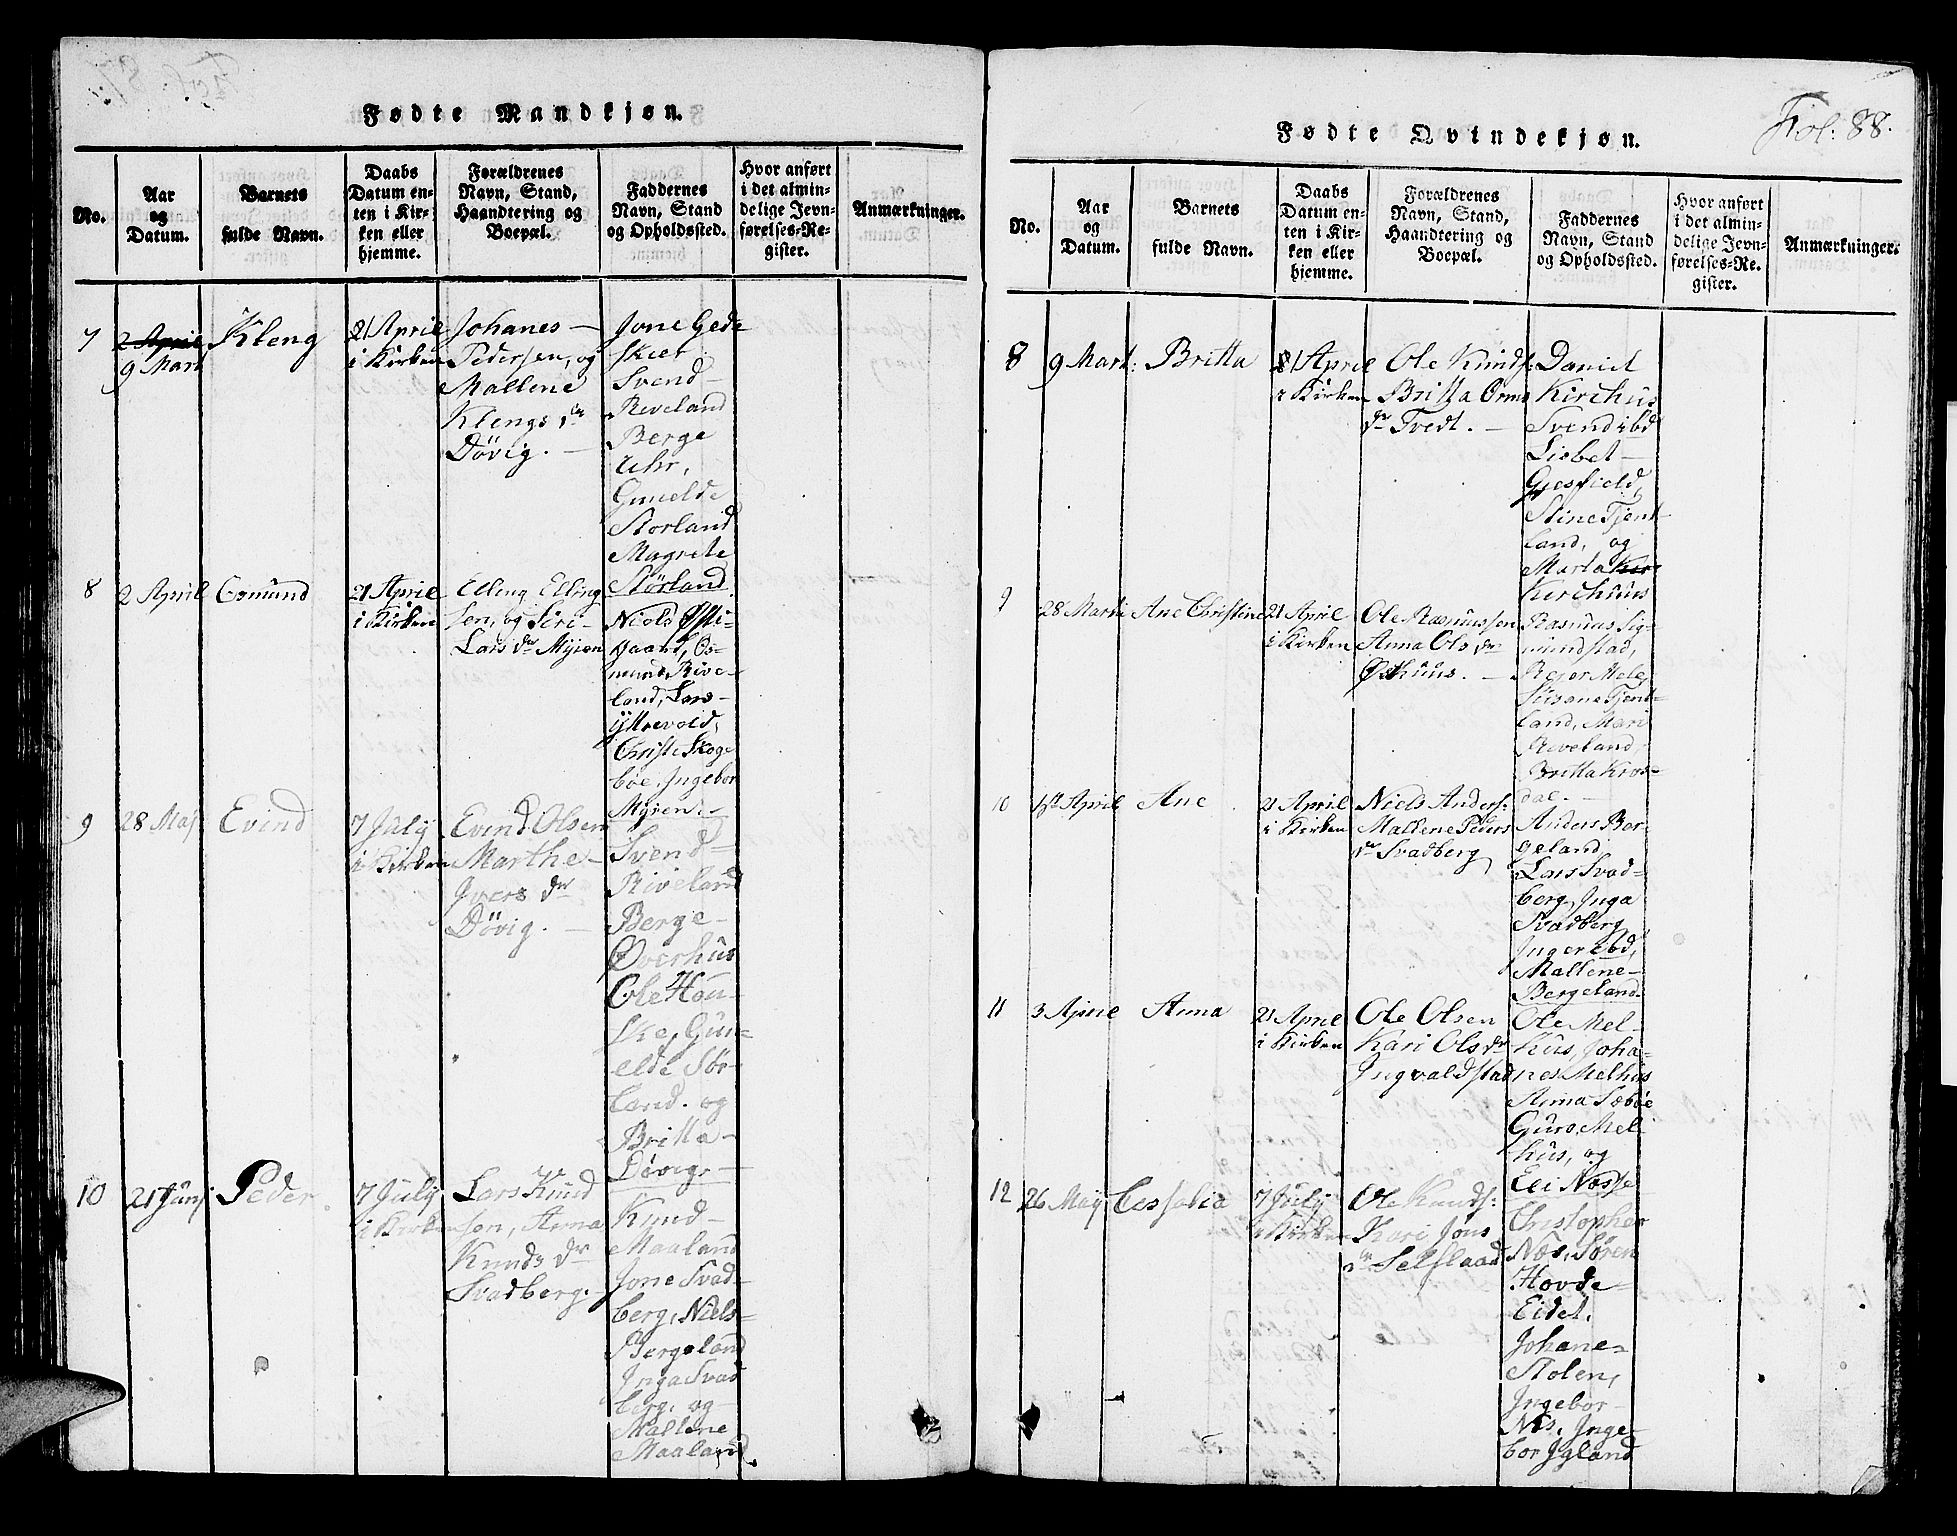 Fødte Mandkjøn.
No.
Aar
og
Datum.
Barnets
fulde Navn.
Daabs
Datum en-
ten i Kir-
ken eller
hjemme.
Forældrenes
Navn, Stand,
Haandtering og
Boepæl.
Faddernes
Navn, Stand
og Opholdssted.
Hvor anført
i det almin-
delige Jevn-
førelses-Re-
gister.
Anmærkninger.
7
2 April
9 Mart
Kleng
21 April
i Kirken
Johanes
Pedersen, og
Mallene
Klengs dr
Døvig.
Jone Gede
skier
Svend
Riveland
Berge
Uhr,
Gunelde
Storland
Magrete
Störland
8
2 April
Osmund
21 April
i Kirken
Elling Elling
sen, og Siri
Lars dr Myren
Niels Østi-
gaard, Os-
mund Rive-
land, Lars
yttrevold,
Christi Skoge
böe, Ingebor
Myren.
9
28 Maj
Evind
7 July
i Kirken
Evend Olsen
Marthe
Ivers dr
Dövig.
Svend
Riveland
Berge
Øverhus
Ole Hou-
ske, Gun-
elde Sör-
land. og
Britta
Dövig,
10
21 Junj
Peder
7 July
i Kirken
Lars Knud
sen, Anna
Knuds dr
Svadberg.
Knud
Maaland
Jone Svad-
berg, Niels
Bergeland
Inga Svad
berg, og
Mallene
Maaland.
Fol: 88.
Fødte Qvindekjøn.
No.
Aar
og
Datum.
Barnets
fulde Navn.
Daabs
Datum en-
ten i Kir-
ken eller
hjemme.
Forældrenes
Navn, Stand,
Haandtering og
Boepæl.
Faddernes
Navn, Stand
og Opholdssted.
Hvor anført
i det almin-
delige Jevn-
førelses-Re-
gister.
Anmærkninger.
8
9 Mart:
Britta
21 April
i Kirken
Ole Knuds:
Britta Orms
dr Tvedt.
Daniel
Kirchus
Svend ibd
Lisbet
Gjesfield,
Stine Tjent-
land, og
Marta
Kirchuus
9
28 Marti
Ane Christine
21 April
i Kirken
Ole Rasmussen
Anna Ols dr
Østhuus.
Rasmus Sig-
mundstad,
Reier Mele,
Susane Tjent-
land, Mari
Riveland,
Britta Kros-
dal.
10
1st April
Ane
21 April
i Kirken
Niels Anders:
Mallene Peders
dr Svadberg
Anders Ber-
geland
Lars Svad-
berg, Inga
Svadberg
Inger ibd,
Mallene
Bergeland.
11
3 Aprie
Anna
21 April
i Kirken
Ole Olsen
Kari Ols dr
Ingvaldstad
Ole Mel-
hus, Joha-
nes Melhus
Anna Sæböe
Guro Mel
hus, og
Eli Næsse
12
26 May
Cessebia
7 July
i Kirken
Ole Knuds:
Kari Jons
dr Selslaad
Christopher
Næs, Søren
Hovde
Eidet.
Johane
Stolen,
Ingebor
Næs, Inge-
bor Igland